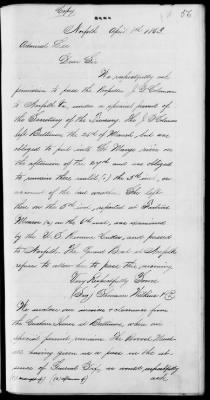 Copy
56
Norfolk April 1st 1863.
Admiral Lee
Dear Sir
We respectfully ask
permission to pass the Propeller J. G. Coleman
to Norfolk Va, under a special permit of
the Secretary of the Treasury. The J. G. Coleman
left Baltimore the 25th of March, but was
obliged to put into St Marys river on
the afternoon of the 27th and was obliged
to remain there until, (1) the 5th inst, on
account of the bad weather. She left
there on the 5th inst, reported at Fortress
Monroe (2) on the 6th inst, was examined
by the U. S. Revenue Cutter, and passed
to Norfolk. The Guard Boat at Norfolk
refuse to allow her to pass this morning
Very Respectfully Yours
(Sig)
We enclose our invoice & clearance from
the Custom House at Baltimore, where our
special permit remains. The Provost Marshal
having given us a pass in the ab-
sence of General Dix, we would respectfully
ask